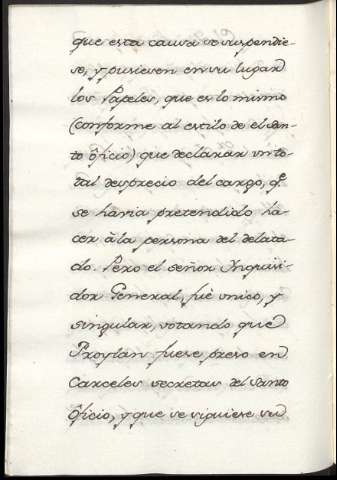 que esta causa se suspendie-
se, y pusiesen en su lugar
los Papeles, que es lo mismo
(conforme al estilo de el San-
to ôficio) que declarar un to-
tal desprecio del cargo, q.e
se havia pretendido ha-
cer â la persona del delata-
do. Pero el señor Inquisi-
dor General, fuè unico, y
singular, votando que
Froylan fuese preso en
Carceles secretas del Santo
Ôficio, y que se siguiese su